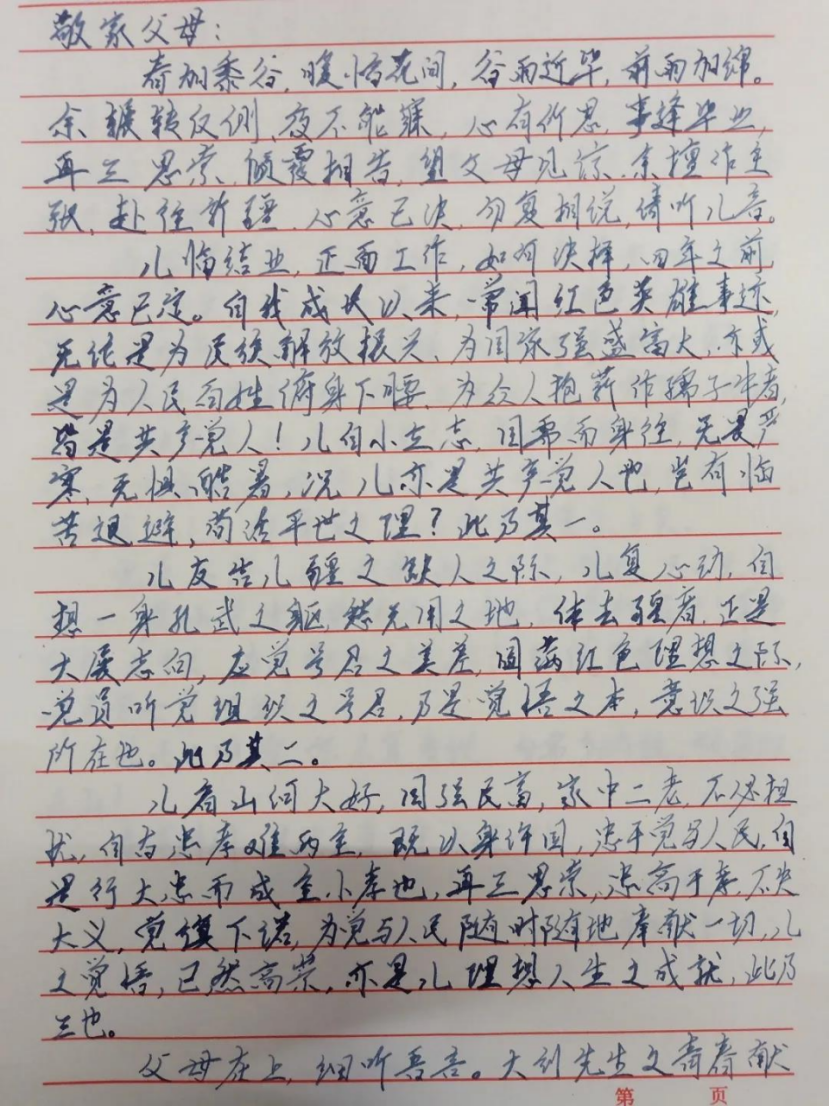 敬家父母：
春加黍谷，暖惜花间，谷雨近毕，前雨加绵。
余辗转反侧，夜不能寐，心有所思，事逢毕业，
再三思索，倾覆相告，望父母见谅，余擅作主
张，赴往新疆，心意已决，勿复相说，倩听儿音。
儿临结业，正面工作，如何决择，四年之前，
心意已定。自我成长以来，常闻红色英雄事迹，
无论是为民族解放振兴、为国家强盛富大，亦或
是为人民百姓俯身下腰、为众人抱薪作孺子牛者，
皆是共产党人！儿自小立志，国需而身往，无畏严
寒，无惧酷暑，况儿亦是共产党人也，岂有临
苦退避，苟活平世之理？此乃其一。
儿友告儿疆之缺人之际，儿复心动，自
想一身孔武之躯，愁无用之地，体去疆者，正是
大展志向，应党号召之美差，圆满红色理想之际，
党员听党组织之号召，乃是党悟之本，意识之强
所在也。此乃其二。
儿看山何大好，国强民富，家中二老，不必担
扰，自古忠孝难两全，既以身许国，忠于党与人民，自
是行大忠而成全小孝也，再三思索，忠高于孝，不失
大义，党旗下诺，为党与人民随时随地奉献一切，儿
之觉悟，已然高荣，亦是儿理想人生之成就，此乃
三也。
父母在上，细听吾言。大钊先生文青春献
第 页